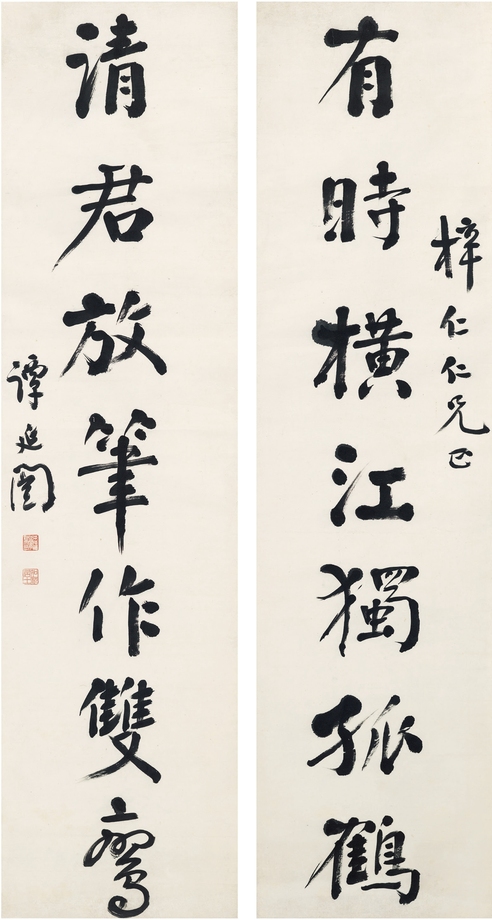 梓仁仁兄正
有時橫江獨孤鶴
請君放筆作雙鸞
譚延闓